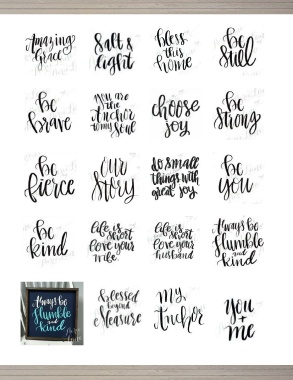 Amazing
Grace
Salt &
Light
bless
this
home
be
still
be
brave
you are
the
Anchor
to my Soul
choose
joy
be
strong
be
fierce
our
Story
do small
things with
great joy
be
you
be
kind
life is
short
love your
wife
life is
short
love your
husband
Always be
Humble
and
kind
Always be
Humble
and
kind
blessed
beyond
Measure
my
Anchor
you
+
me